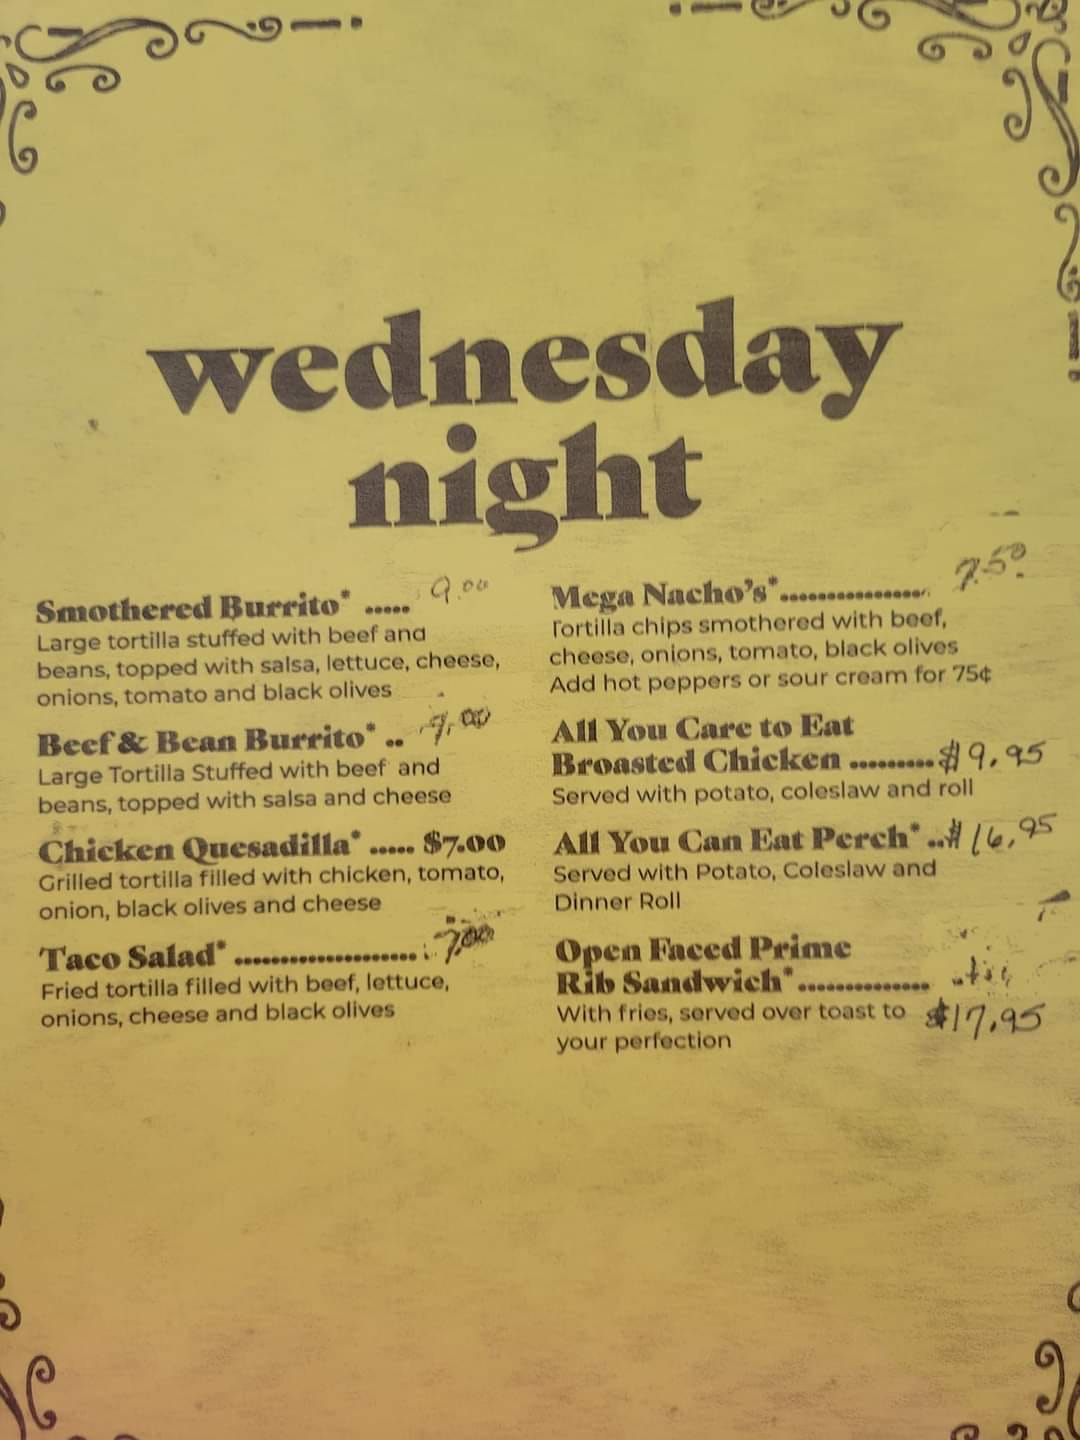 wednesday
night
Smothered Burrito* ..... 9.00
Large tortilla stuffed with beef and
beans, topped with salsa, lettuce, cheese,
onions, tomato and black olives
Beef & Bean Burrito* ..
Large Tortilla Stuffed with beef and
beans, topped with salsa and cheese
Chicken Quesadilla* ..... $7.00
Grilled tortilla filled with chicken, tomato,
onion, black olives and cheese
Taco Salad* .................... 7.00
Fried tortilla filled with beef, lettuce,
onions, cheese and black olives
Mega Nacho's*................ 7.50
Tortilla chips smothered with beef,
cheese, onions, tomato, black olives
Add hot peppers or sour cream for 75¢
All You Care to Eat
Broasted Chicken .........$9.95
Served with potato, coleslaw and roll
All You Can Eat Perch* ..$16.95
Served with Potato, Coleslaw and
Dinner Roll
Open Faced Prime
Rib Sandwich*..............
With fries, served over toast to $17.95
your perfection